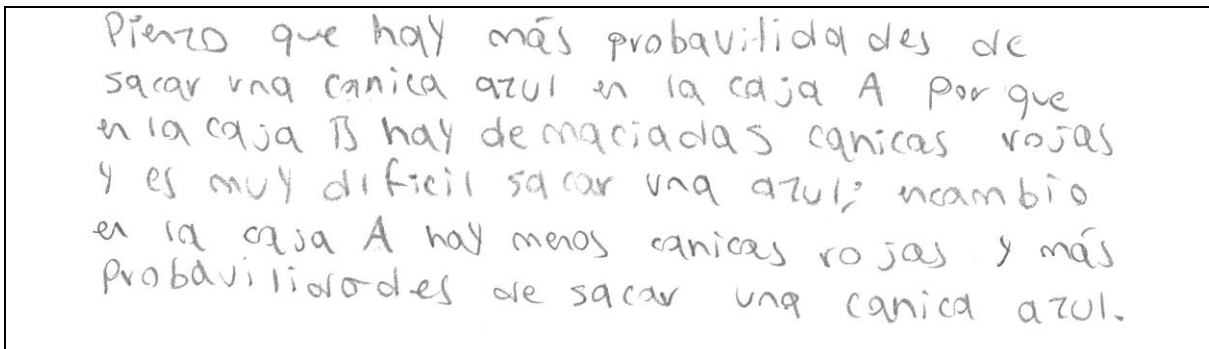 Pienzo que hay más probavilidades de
sacar una canica azul en la caja A por que
en la caja B hay demaciadas canicas rojas
y es muy dificil sacar una azul; encambio
en la caja A hay menos canicas rojas y más
probavilidades de sacar una canica azul.